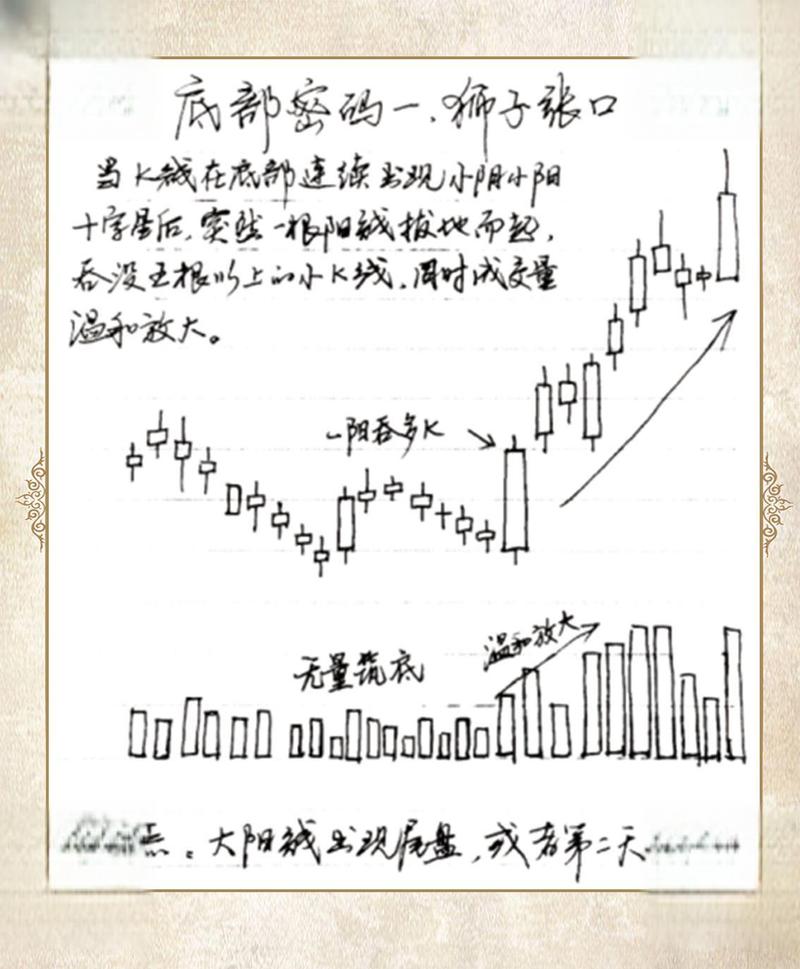 底部密码一、狮子张口
当K线在底部连续出现小阴小阳
十字星后,突然一根阳线拔地而起,
吞没五根以上的小K线,同时成交量
温和放大。
一阳吞多K
温和放大
无量筑底
点。大阳线出现尾盘,或者第二天